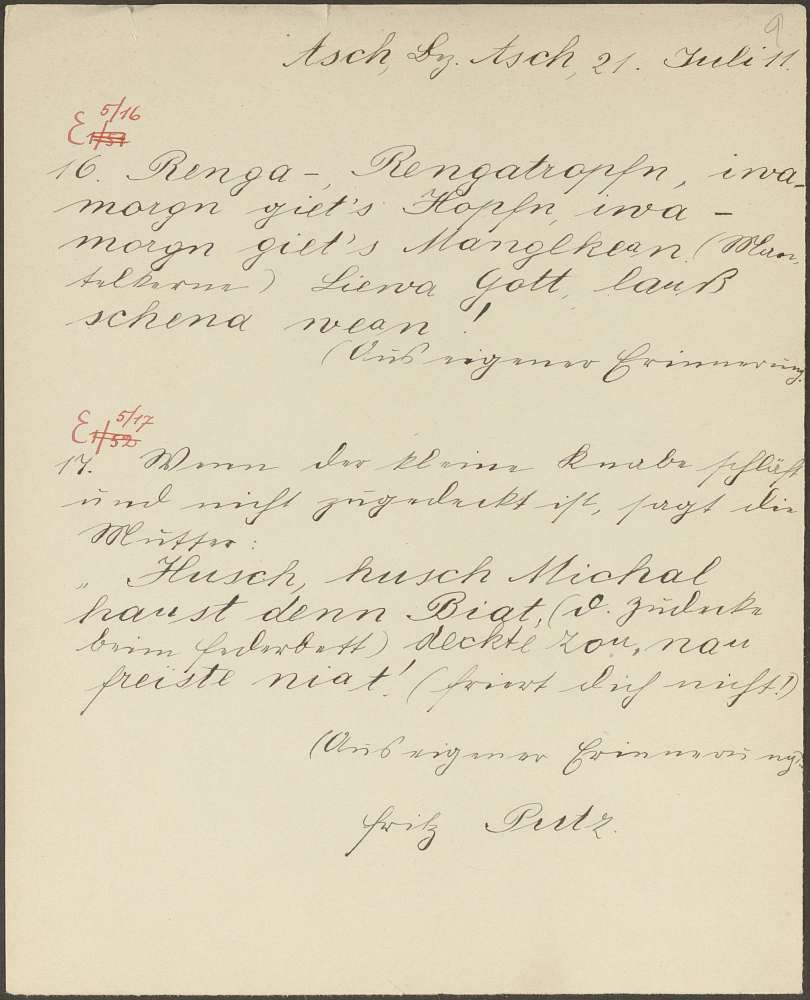 9
Asch, Bz. Asch, 21. Juli 11.
E 5/16
1/51
16. Renga-, Rengatropfn, iwa-
morgn giet's Hopfn, iwa-
morgn giet's Manglkean (Man-
telkerne) Liewa Gott, lauß
schena wean!
(Aus eigener Erinnerung.
E 5/17
1/52
17. Wenn der kleine Knabe schläft
und nicht zugedeckt ist, sagt die
Mutter:
„Husch, husch Michal
haust denn Biat, (d. Zudecke
beim Federbett) deckte zou, nau
freiste niat! (friert dich nicht!)
(Aus eigener Erinnerung).
Fritz Putz.